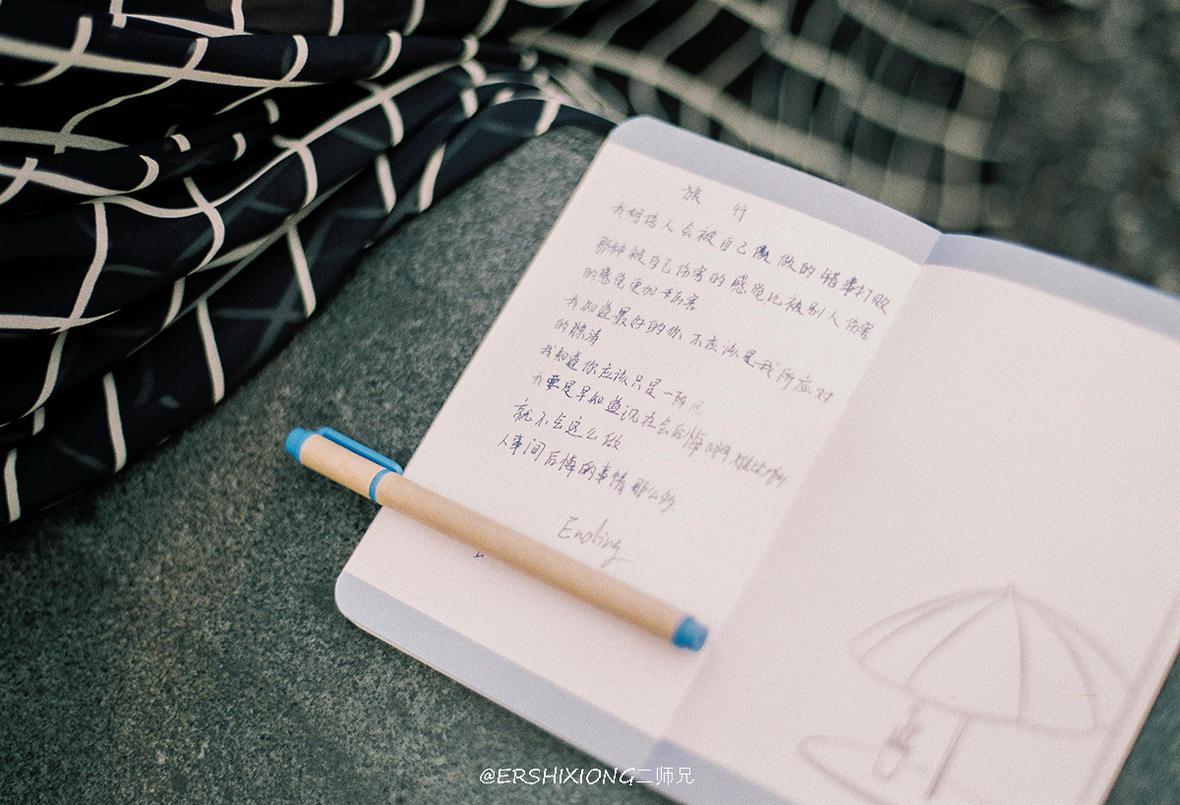 旅 行
我相信人会被自己做的错事打败
那种被自己伤害的感觉比被别人伤害
的感觉更加伤害
我知道最好的你 不应该是我所应对
的
我知道你应该只是一阵风
我要是早知道现在会后悔
就不会这么做
人事间后悔的事情那么多
Ending
@ERSHIXIONG二师兄